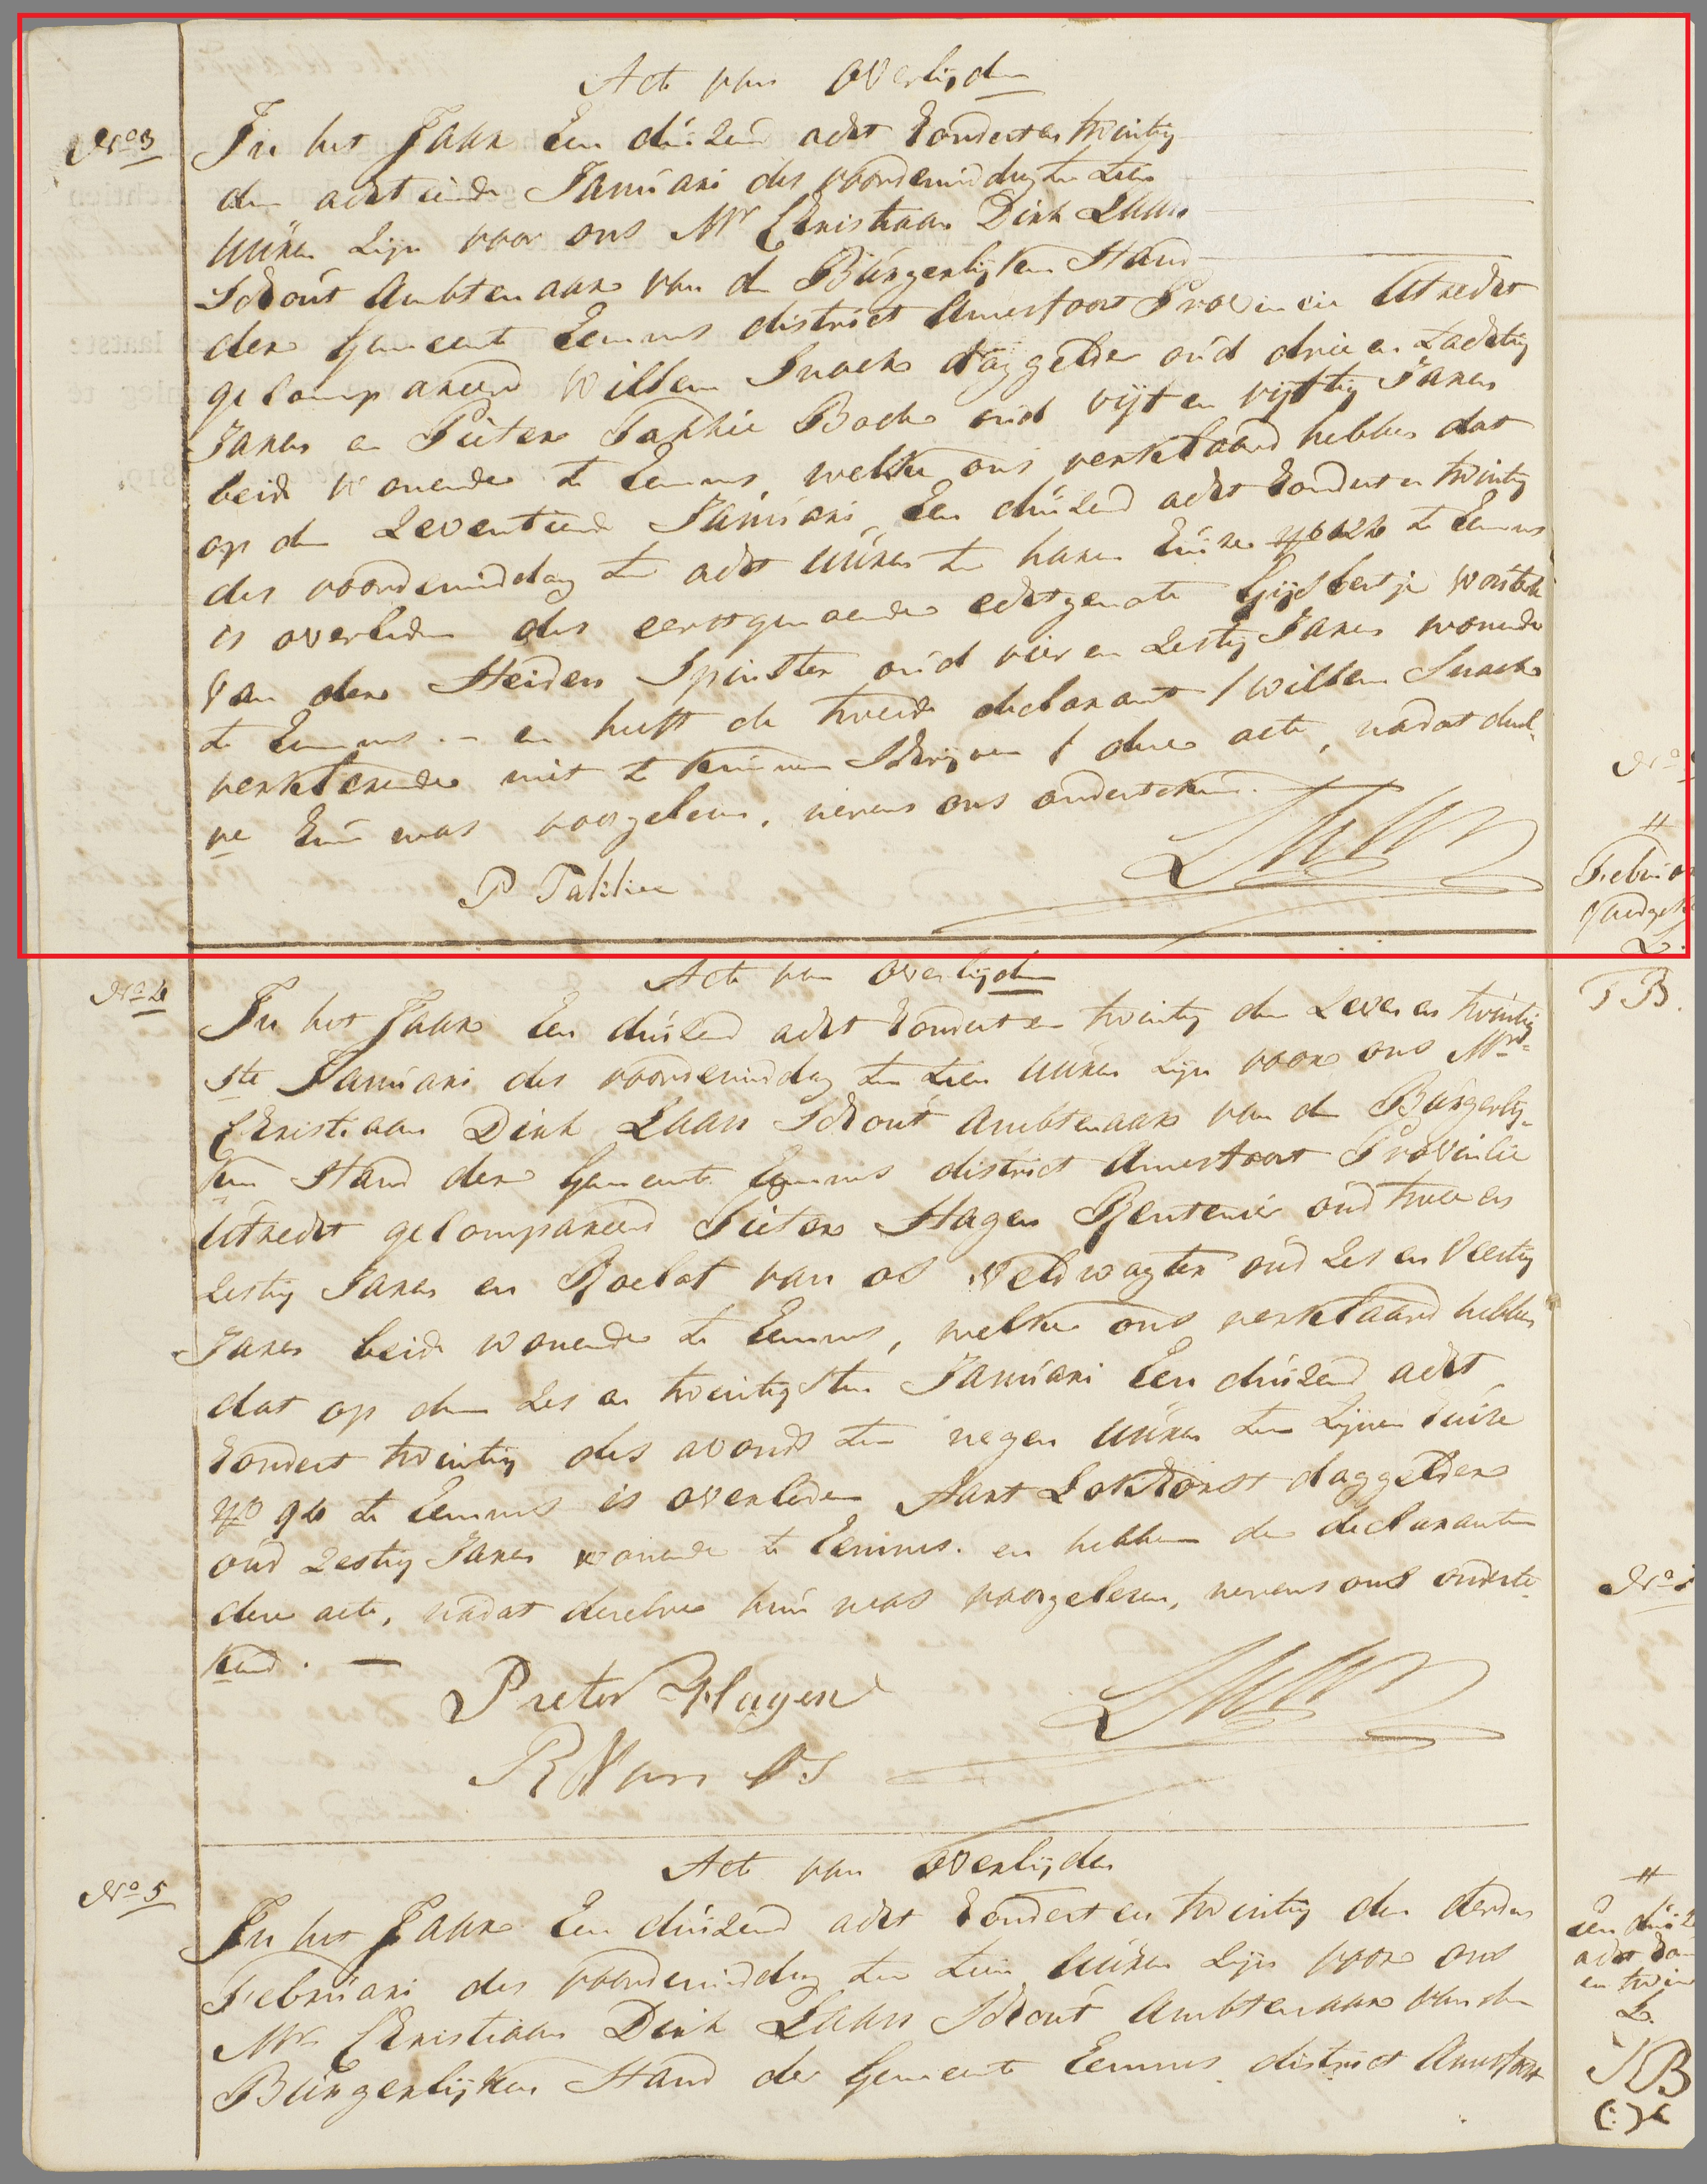 Acte van Overlijden
No 3
In het Jaar Een duizend acht hondert en twintig
den achttiende Januari des voordemiddag ten tien
uuren zijn voor ons Mr Christiaan Dirk Laan
Schout Ambtenaar van de Burgerlijken Stand
der Gemeente Eemnes district Amersfoort Provincie Utrecht
gecompareerd Willem Snoek daggelder oud drie en zachtig
Jaren en Pieter Takkie Bode oud vijf en vijftig Jaren
beide wonende te Eemnes, welke ons verklaard hebben dat
op den Zeventiende Januari Een duizend acht hondert en twintig
des voordemiddag ten acht uuren ten haren huize te Eemnes
is overleden des eerstgenoemde echtgenote Gijsbertje
van der Heiden Spinster oud vier en Zestig Jaren wonende
te Eemnes. – en heeft de tweede declarant / Willem Snoek
verklerende niet te kunnen Schrijven / dese acte, nadat desel-
ve hun was voorgelezen, nevens ons ondertekend.
P Takkie
No 4
Acte van Overlijden
In het Jaar Een duizend acht hondert en twintig den Zeven en twintig
ste Januari des voordemiddag ten tien uuren zijn voor ons Mr
Christiaan Dirk Laan Schout Ambtenaar van de Burgerlij-
ken Stand der Gemeente Eemnes district Amersfoort Provincie
Utrecht gecompareerd Pieter Hagen Rentenier oud twee en
Zestig Jaren en Roelof van Os Veldwagter oud Zes en Veertig
Jaren beide wonende te Eemnes, welke ons verklaard hebben
dat op den Zes en twintigsten Januari Een duizend acht
hondert twintig des avonds ten negen uuren ten zijnen huize
No 90 te Eemnes is overleden Aart Lokhorst daggelder
oud Zestig Jaren wonende te Eemnes. en hebben de declaranten
dese acte, nadat deselve hun was voorgelesen, nevens ons onderte-
kend. —
Pieter Hagen
R Van Os
No 5
Acte van Overlijden
In het Jaar Een duizend acht hondert en twintig den derden
Februari des voordemiddag ten tien uuren zijn voor ons
Mr Christiaan Dirk Laan Schout Ambtenaar van den
Burgerlijken Stand der Gemeente Eemnes district Amersfoort
No
Februa
L.
T B.
No
een duiz
acht hon
en twin
L.